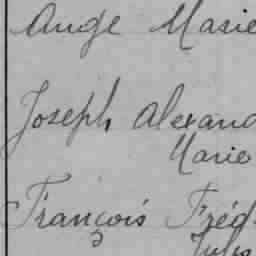 Ange Marie
Joseph Alexand
Marie
François Fréd
Jules